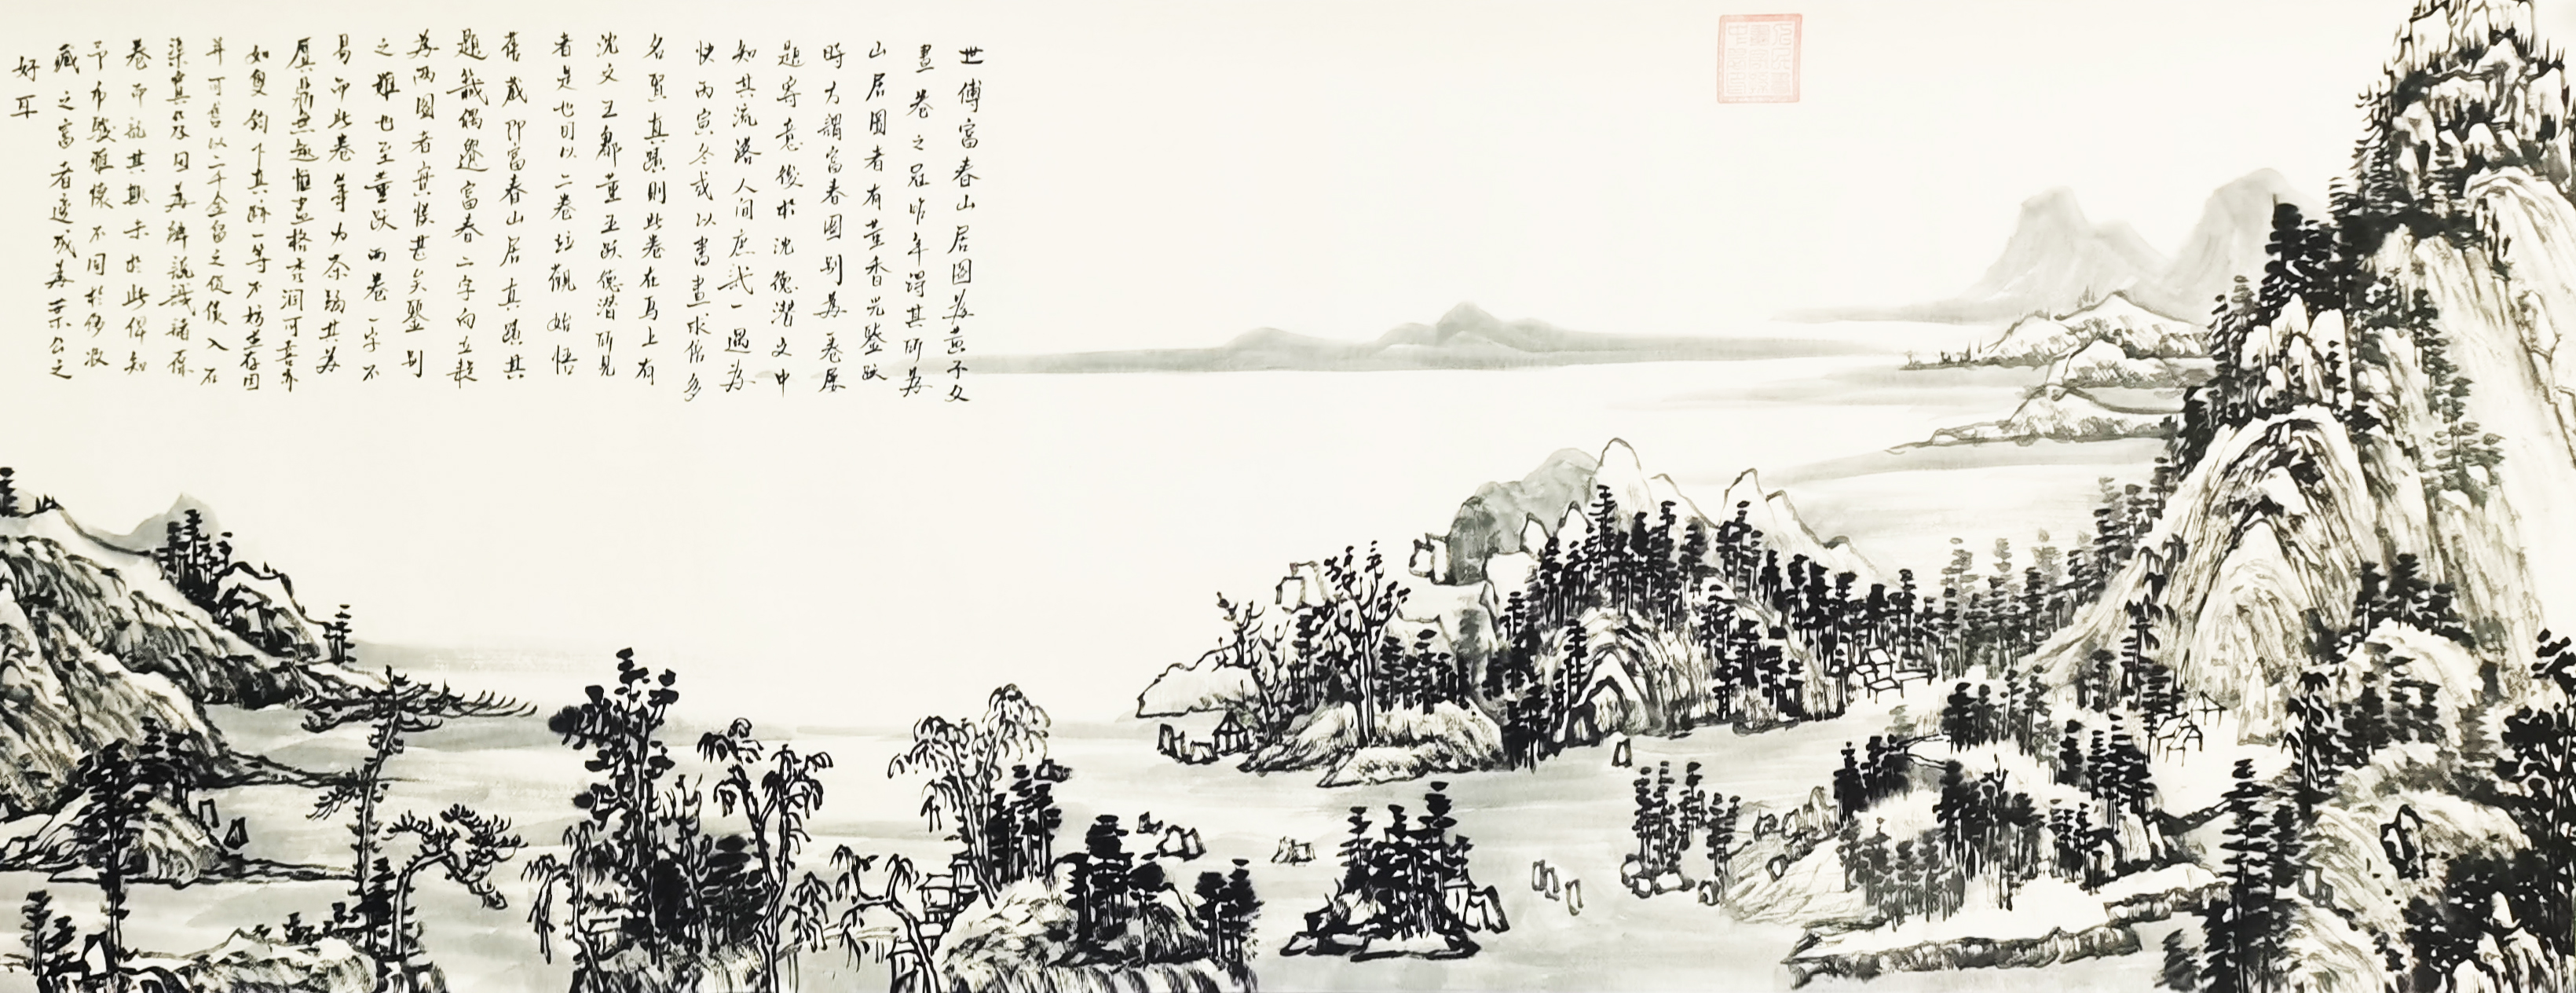 世傳富春山居圖為黃子久
畫卷之冠昨年得其所為
山居圖者有董香光鑒跋
時方謂富春圖别為卷屢
題寄意後於沈德潛文中
知其流落人間庶幾一遇為
快丙寅冬或以書畫求售多
名賢真蹟則此卷在焉上有
沈文王鄒董五跋德潛所見
者是也因以二卷並觀始悟
舊藏即富春山居真蹟其
題籤偶遺富春二字向之疑
為兩圖者實悮甚矣鑒别
之難也至董跋兩卷一字不
易而此卷筆力茶弱其為
贗鼎無疑惟畫格秀潤可喜亦
如雙鈎下真跡一等不妨並存因
並可售以二千金留之俾入石
渠寶笈因為辨說識諸原
卷而說其概示於此俾知
予市駿雅懷不同於侈收
藏之富者遂成為葉公之
好耳